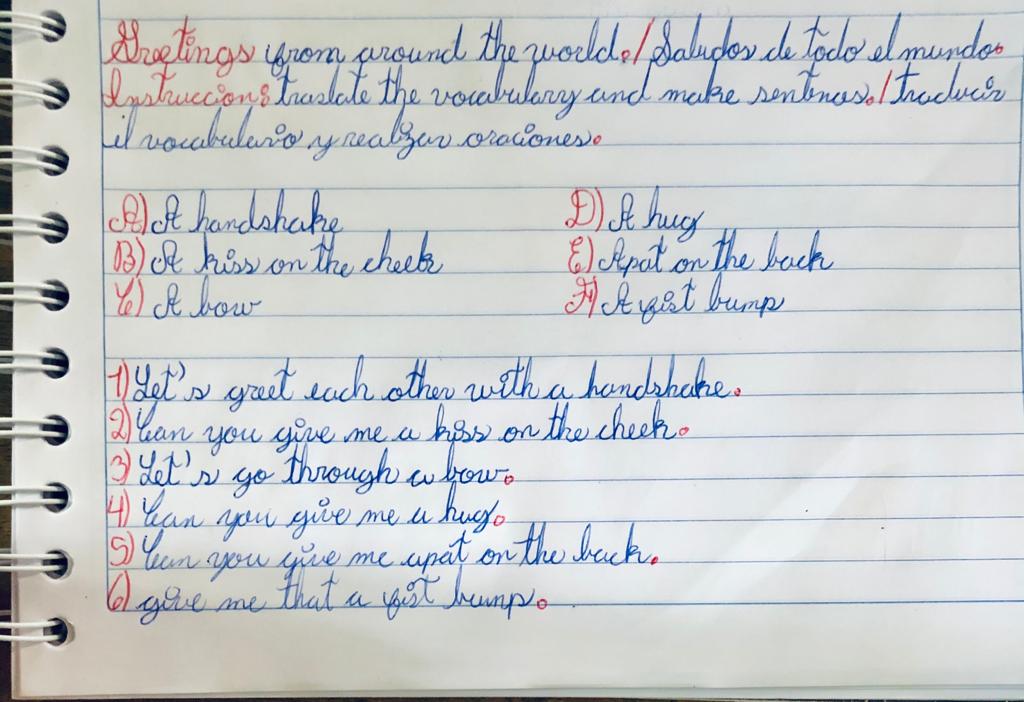 Greetings from around the world./Saludos de todo el mundo.
Instruccion: traslate the vocabulary and make sentences./Traducir
el vocabulario y realizar oraciones.
A) A handshake
B) A kiss on the cheek
C) A bow
D) A hug
E) Apat on the back
F) A fist bump
1) Let's greet each other with a handshake.
2) Can you give me a kiss on the cheek.
3) Let's go through a bow.
4) Can you give me a hug.
5) Can you give me apat on the back.
6) give me that a fist bump.